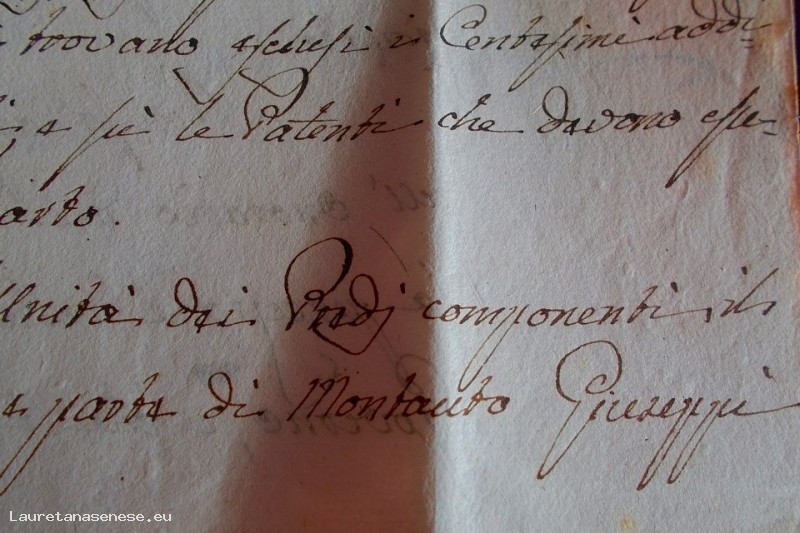 trovano esclusi i Centesimi addi-
e più le Patenti che devono esse-
arto.
Unità dei Pndj componenti il
e parte di Montauto Giuseppe
Lauretanasenese.eu